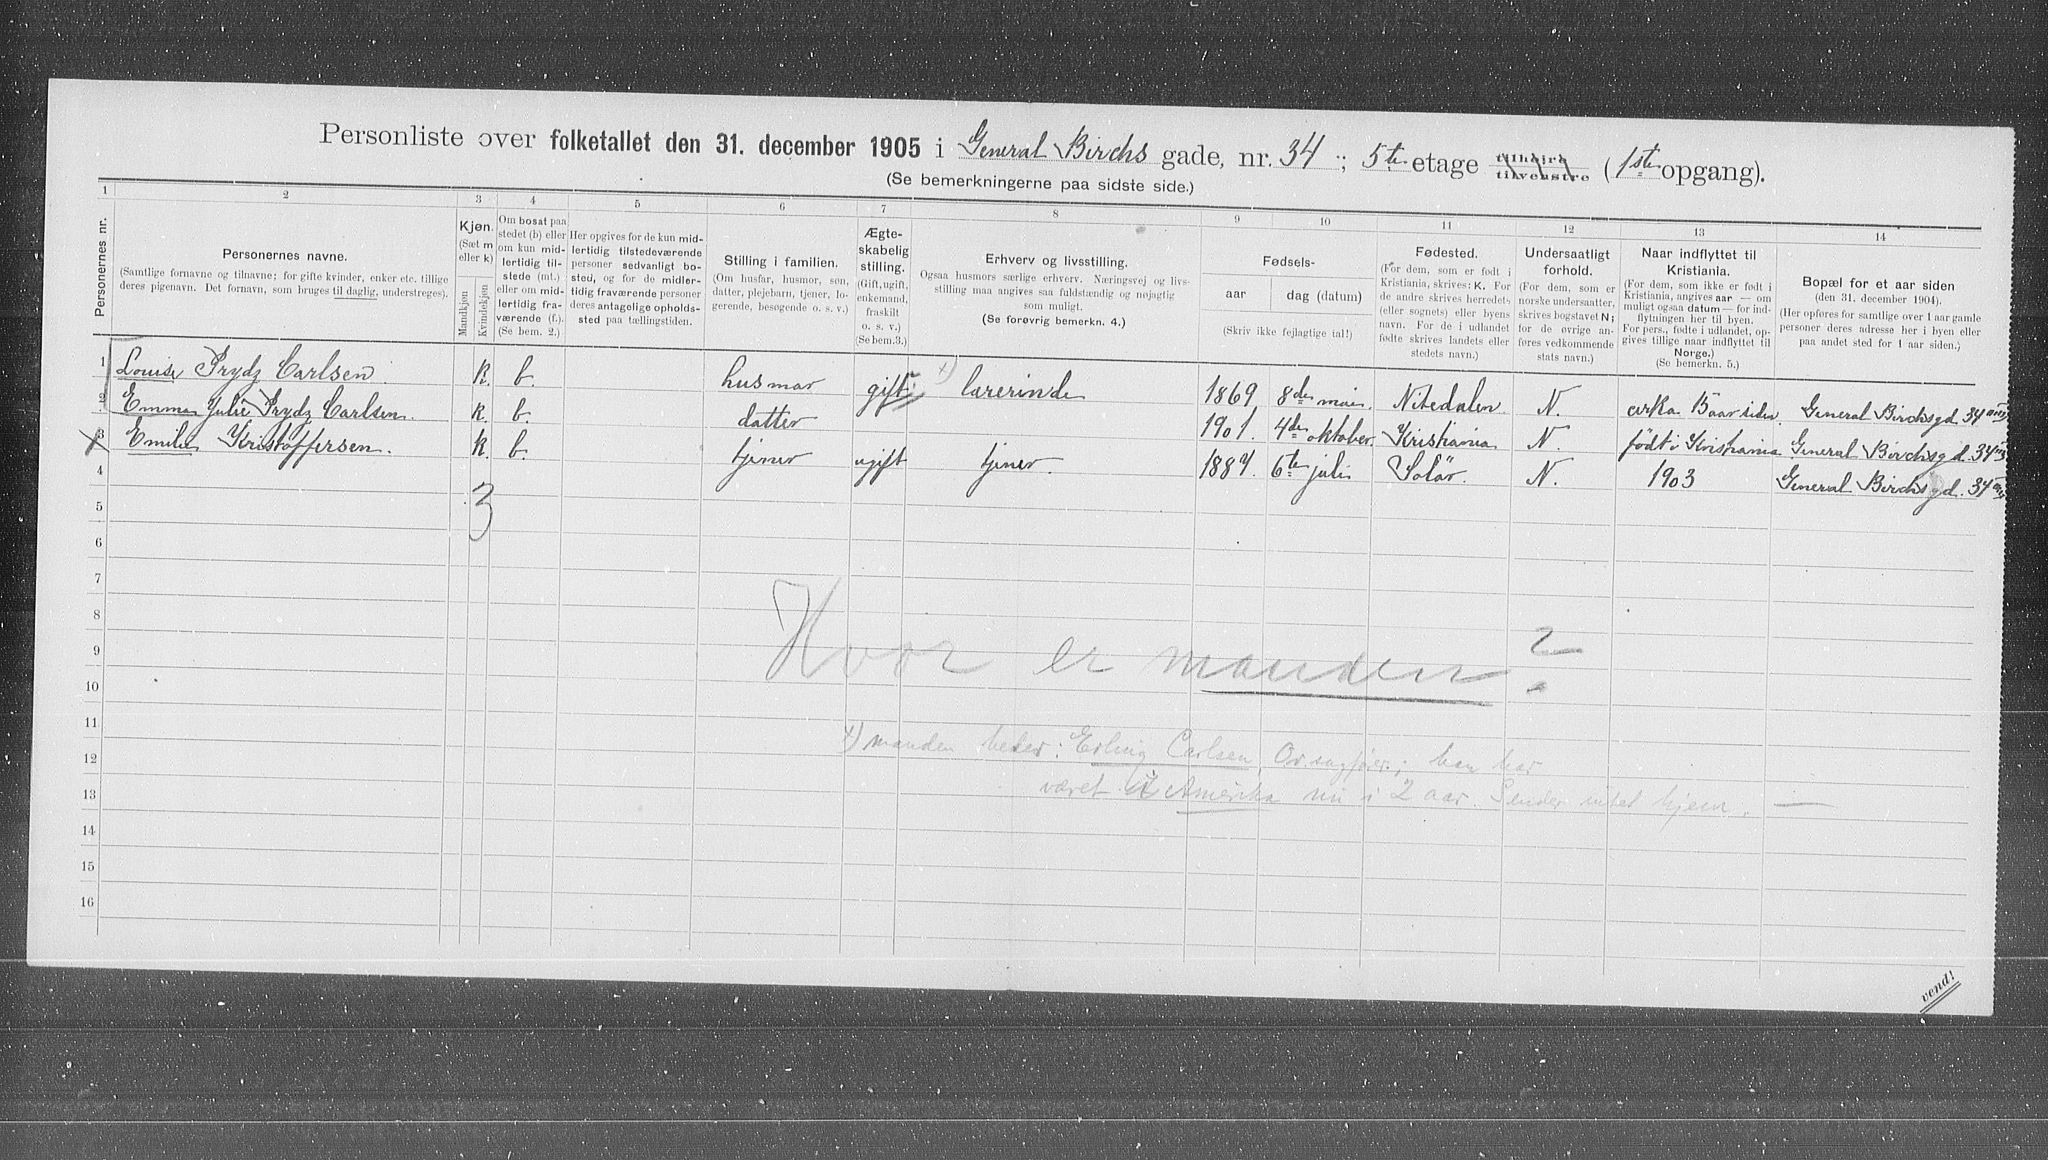 Personliste over folketallet den 31. december 1905 i General Birchs gade, nr. 34 ; 5te etage tilhøire tilvenstre (1ste opgang).
(Se bemerkningerne paa sidste side.)
1 2 3 4 5 6 7 8 9 10 11 12 13 14
Personernes nr.
Personernes navne.
(Samtlige fornavne og tilnavne; for gifte kvinder, enker etc. tillige
deres pigenavn. Det fornavn, som bruges til daglig, understreges).
Kjøn.
(Sæt m
eller k)
Mandkjøn
Kvindekjøn
Om bosat paa
stedet (b) eller
om kun mid-
lertidig til-
stede (mt.)
eller om mid-
lertidig fra-
værende (f.).
(Se bem. 2.)
Her opgives for de kun mid-
lertidig tilstedeværende
personer sedvanligt bo-
sted, og for de midler-
tidig fraværende personer
deres antagelige opholds-
sted paa tællingstiden.
Stilling i familien.
(Om husfar, husmor, søn,
datter, plejebarn, tjener, lo-
gerende, besøgende o. s. v.)
Ægte-
skabelig
stilling.
(Gift, ugift,
enkemand,
fraskilt
o. s. v.)
(Se bem. 3.)
Erhverv og livsstilling.
Ogsaa husmors særlige erhverv. Næringsvej og livs-
stilling maa angives saa fuldstændig og nøjagtig
som muligt.
(Se forøvrig bemerkn. 4.)
Fødsels-
aar dag (datum)
(Skriv ikke fejlagtige tal!)
Fødested.
(For dem, som er født i
Kristiania, skrives: K. For
de andre skrives herredet-
(eller sognets) eller byens
navn. For de i udlandet
fødte skrives landets eller
stedets navn.)
Undersaatligt
forhold.
(For dem, som er
norske undersaatter,
skrives bogstavet N;
for de øvrige an-
føres vedkommende
stats navn.)
Naar indflyttet til
Kristiania.
(For dem, som ikke er født i
Kristiania, angives aar — om
muligt ogsaa datum — for ind-
flytningen her til byen.
For pers., fødte i udlandet, op-
gives tillige naar indflyttet til
Norge.)
(Se bemerkn. 5.)
Bopæl for et aar siden
(den 31. december 1904).
(Her opføres for samtlige over 1 aar gamle
personer deres adresse her i byen eller
paa andet sted for 1 aar siden.)
1 Louise Prydz Carlsen. k. b. husmor gift x) lærerinde 1869 8de mai. Nitedalen N. cirka 15 aar siden. General Birchsgd. 34
2 Emma Julie Prydz Carlsen. k. b. datter 1901. 4de oktober. Kristiania N. født i Kristiania General Birchsgd. 34
3 Emilie Kristoffersen. k. b. tjener ugift tjener. 1887. 6te juli Solør. N. 1903 General Birchsgd. 34
4
3
5
6
7
8
Hvor er manden?
9
10
11
x) manden heder: Erling Carlsen, Or.sagfører; han har
12
været i Amerika nu i 2 aar. Sender intet hjem. —
13
14
15
16
vend!